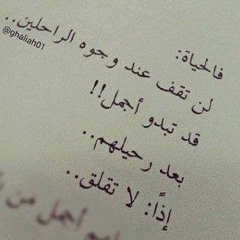 فالحياة:
لن تقف عند وجوه الراحلين..
@ghaliah01
قد تبدو أجمل!!
بعد رحيلهم..
إذًا: لا تقلق..
أجمل من